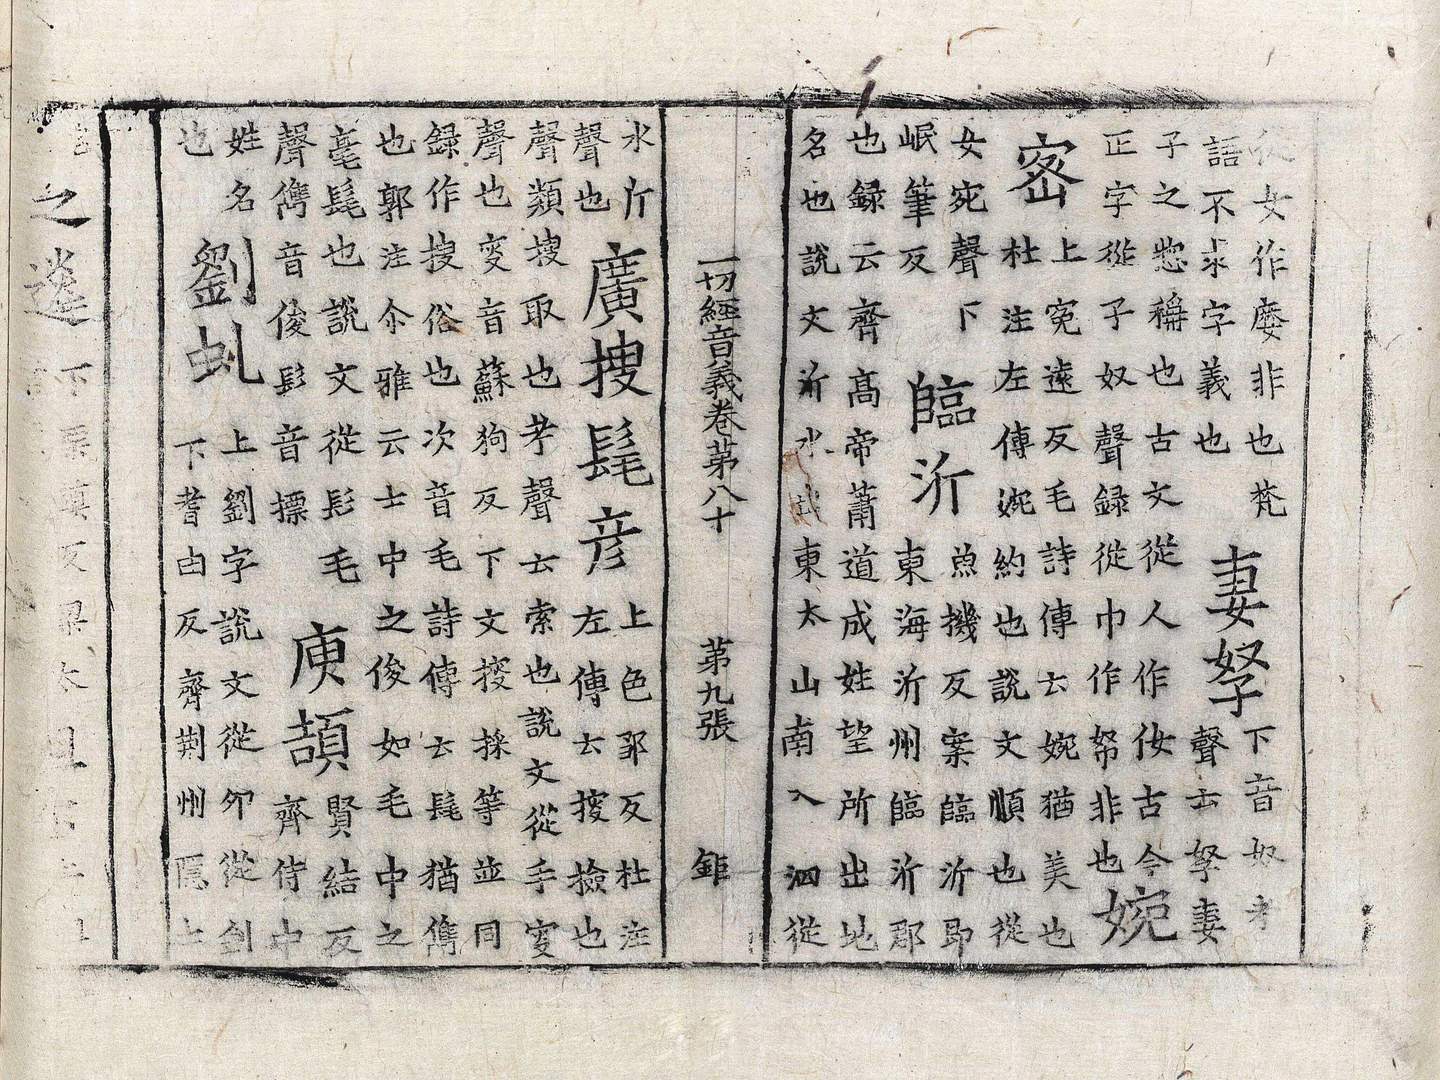 從女作㜮非也梵
語不求字義也
妻孥
下音奴考
聲云孥妻
子之揔稱也古文從人作㐐古今
正字從子奴聲録從巾作帑非也
婉
密
上冤遠反毛詩傳云婉猶美也
杜注左傳婉約也說文順也從
女宛聲下
岷筆反
臨沂
魚機反案臨沂即
東海沂州臨沂郡
也録云齊髙帝蕭道成姓望所出地
名也說文沂水出東太山南入泗從
一切經音義卷第八十 第九張 鉅
水斤
聲也
廣搜髦彦
上色邹反杜注
左傳云搜撿也
聲類搜取也考聲云索也說文從手叜
聲也叜音蘇狗反下文搜採等並同
録作搜俗也次音毛詩傳云髦猶儁
也郭注尒雅云士中之俊如毛中之
毫髦也說文從髟毛
聲儁音俊髟音摽
庾頡
賢結反
齊侍中
姓名
也
劉虬
上劉字說文從卯從釗
下耆由反齊荆州隱士
之遴